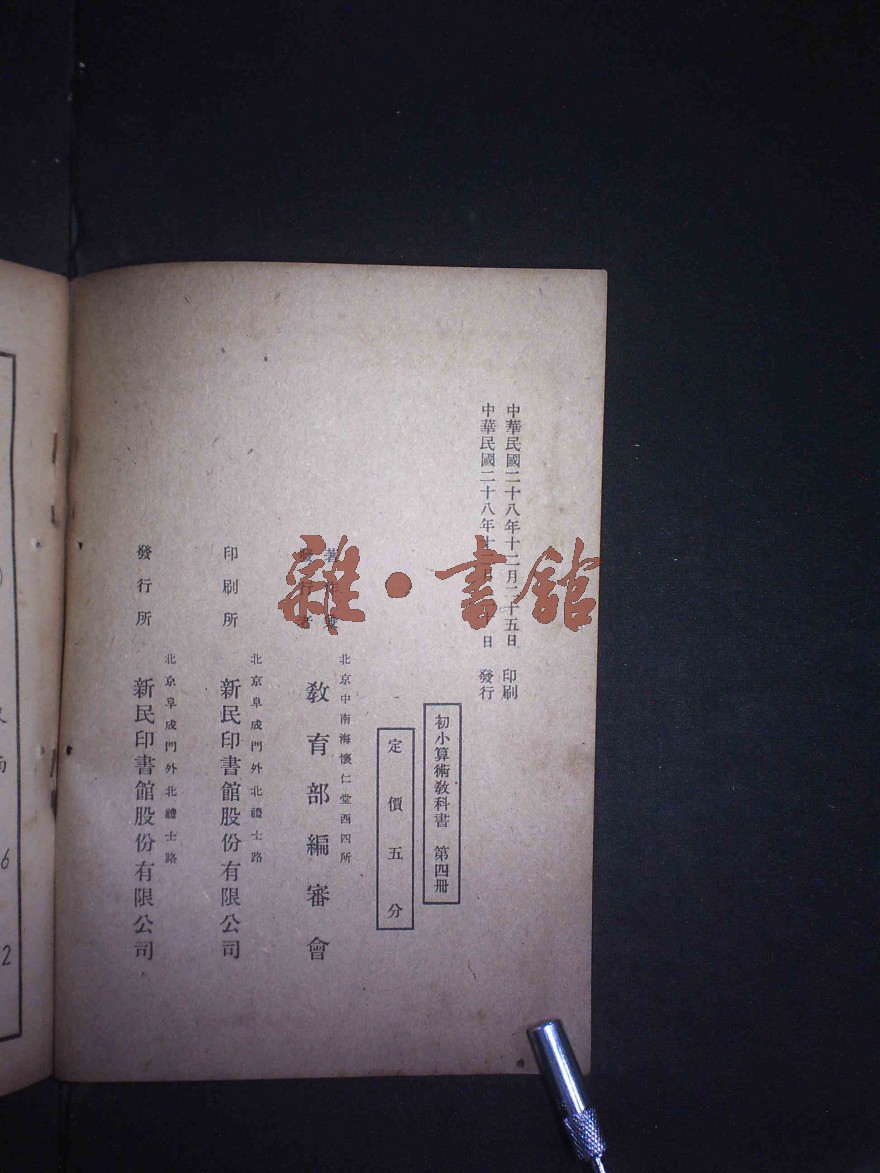 中華民國二十八年十二月二十五日 印刷
中華民國二十八年十 日 發行
初小算術教科書 第四冊
定價五分
北京中南海懷仁堂西四所
著
教育部編審會
北京阜成門外北禮士路
印刷所 新民印書館股份有限公司
北京阜成門外北禮士路
發行所 新民印書館股份有限公司
雜·書館
6
2